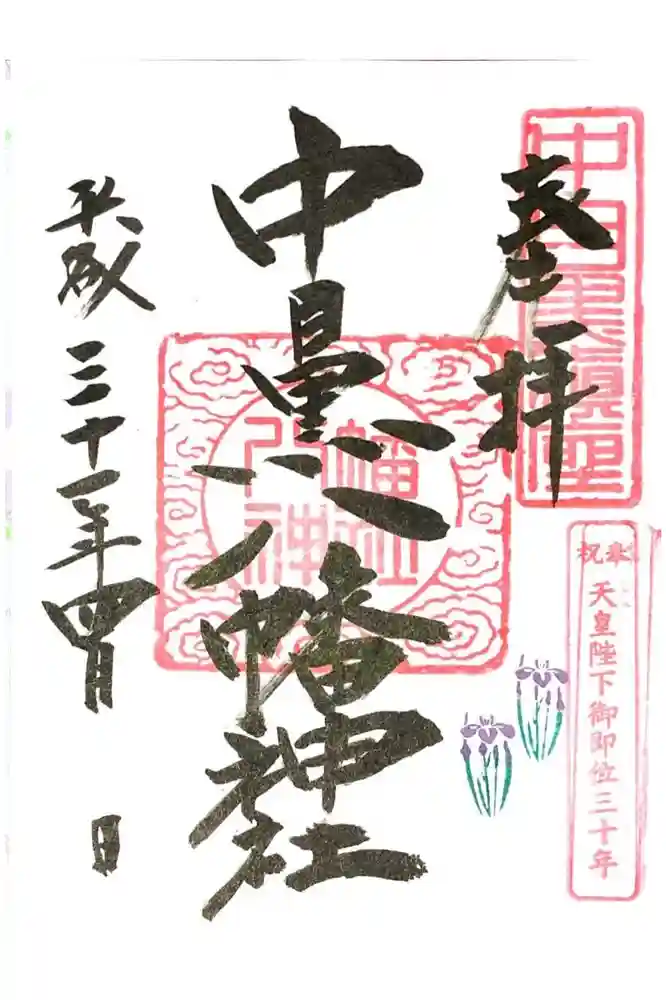 中目黒鎮座
奉拝
奉祝
天皇陛下御即位三十年
中目黒八幡神社
八幡神社
平成三十一年四月 日